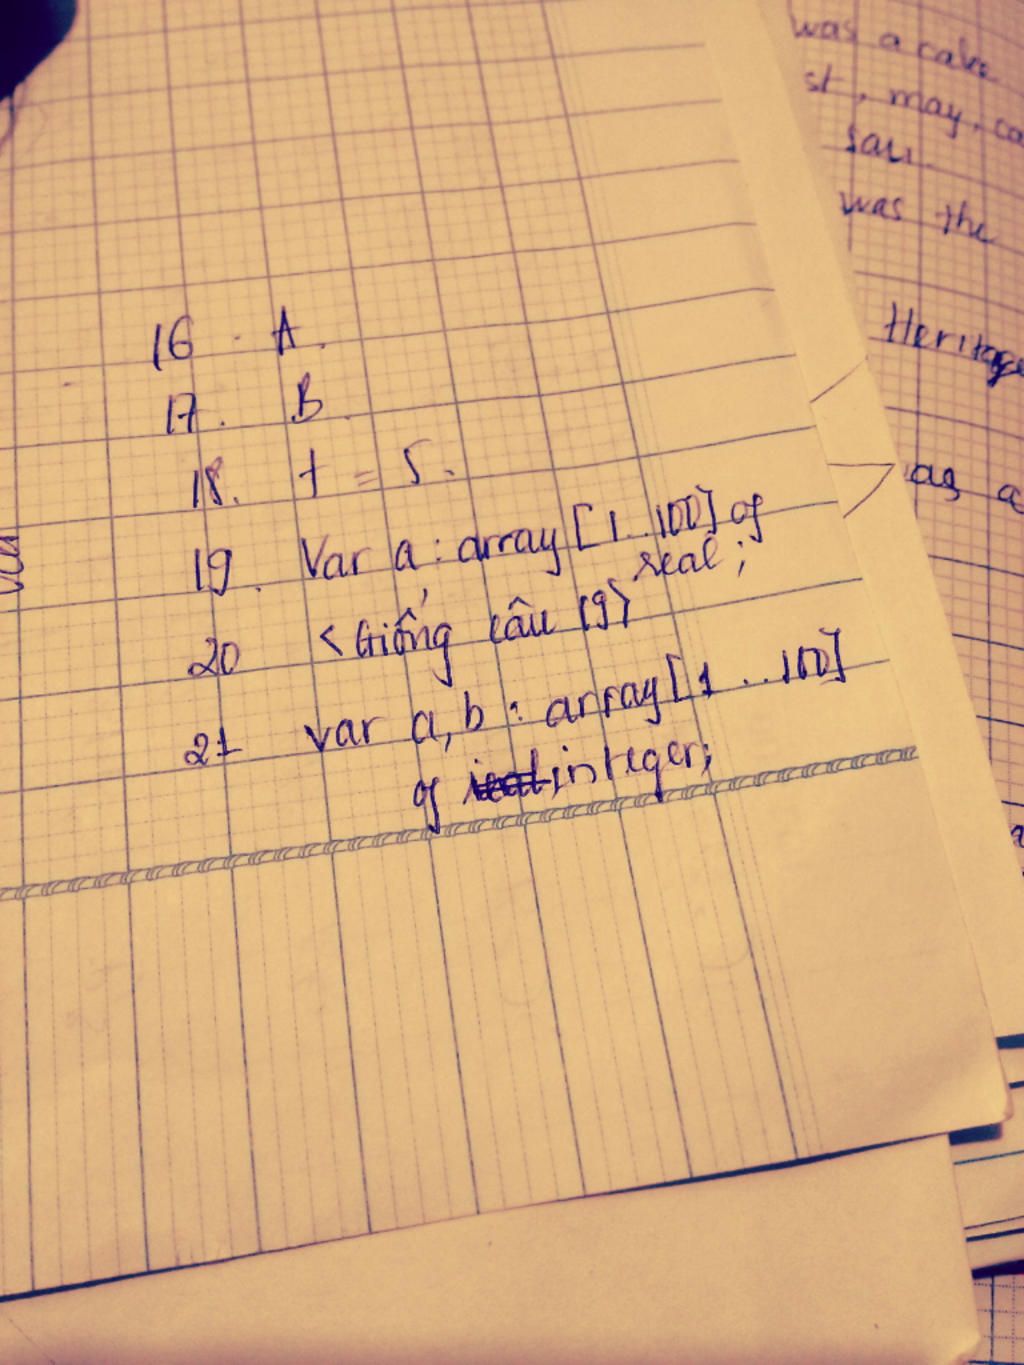 16. A.
17. B.
18. t = 5.
19. Var a : array [1..100] of
real;
20 <Giống câu 19>
21 var a, b : array [1..100]
of integer;
was a
st, may, ca
sau.
was the
Heritage
as a